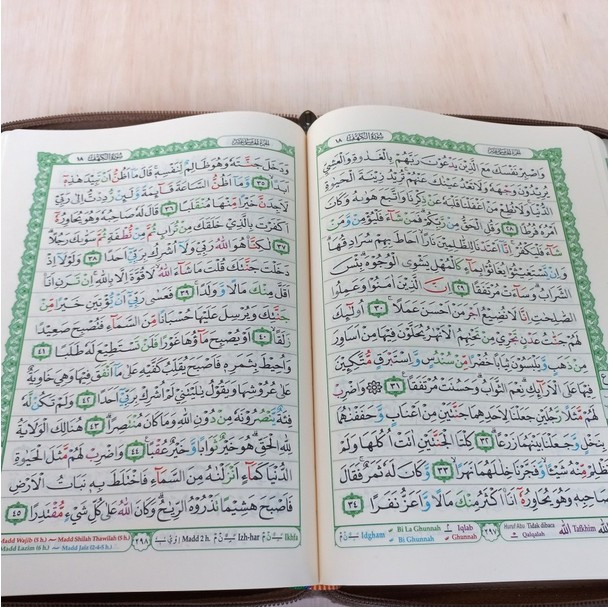 سورة الكهف ١٨
وَاصْبِرْ نَفْسَكَ مَعَ الَّذِيْنَ يَدْعُوْنَ رَبَّهُمْ بِالْغَدٰوةِ وَالْعَشِيِّ
يُرِيْدُوْنَ وَجْهَهٗ وَلَا تَعْدُ عَيْنٰكَ عَنْهُمْ تُرِيْدُ زِيْنَةَ الْحَيٰوةِ
الدُّنْيَا وَلَا تُطِعْ مَنْ اَغْفَلْنَا قَلْبَهٗ عَنْ ذِكْرِنَا وَاتَّبَعَ هَوٰىهُ وَكَانَ
اَمْرُهٗ فُرُطًا ٢٨ وَقُلِ الْحَقُّ مِنْ رَّبِّكُمْ فَمَنْ شَاۤءَ فَلْيُؤْمِنْ وَّمَنْ
شَاۤءَ فَلْيَكْفُرْ اِنَّآ اَعْتَدْنَا لِلظّٰلِمِيْنَ نَارًا اَحَاطَ بِهِمْ سُرَادِقُهَا
وَاِنْ يَّسْتَغِيْثُوْا يُغَاثُوْا بِمَاۤءٍ كَالْمُهْلِ يَشْوِى الْوُجُوْهَ بِئْسَ
الشَّرَابُ وَسَاۤءَتْ مُرْتَفَقًا ٢٩ اِنَّ الَّذِيْنَ اٰمَنُوْا وَعَمِلُوا
الصّٰلِحٰتِ اِنَّا لَا نُضِيْعُ اَجْرَ مَنْ اَحْسَنَ عَمَلًا ٣٠ اُولٰۤىِٕكَ
لَهُمْ جَنّٰتُ عَدْنٍ تَجْرِيْ مِنْ تَحْتِهِمُ الْاَنْهٰرُ يُحَلَّوْنَ فِيْهَا مِنْ اَسَاوِرَ
مِنْ ذَهَبٍ وَّيَلْبَسُوْنَ ثِيَابًا خُضْرًا مِّنْ سُنْدُسٍ وَّاِسْتَبْرَقٍ مُّتَّكِـِٕيْنَ
فِيْهَا عَلَى الْاَرَاۤىِٕكِ نِعْمَ الثَّوَابُ وَحَسُنَتْ مُرْتَفَقًا ٣١ وَاضْرِبْ
لَهُمْ مَّثَلًا رَّجُلَيْنِ جَعَلْنَا لِاَحَدِهِمَا جَنَّتَيْنِ مِنْ اَعْنَابٍ وَّحَفَفْنٰهُمَا
بِنَخْلٍ وَّجَعَلْنَا بَيْنَهُمَا زَرْعًا ٣٢ كِلْتَا الْجَنَّتَيْنِ اٰتَتْ اُكُلَهَا وَلَمْ
تَظْلِمْ مِّنْهُ شَيْـًٔا وَّفَجَّرْنَا خِلٰلَهُمَا نَهَرًا ٣٣ وَّكَانَ لَهٗ ثَمَرٌ فَقَالَ
لِصَاحِبِهٖ وَهُوَ يُحَاوِرُهٗٓ اَنَا۠ اَكْثَرُ مِنْكَ مَالًا وَّاَعَزُّ نَفَرًا ٣٤
Idgham Bi La Ghunnah Iqlab ٢٩٧ Huruf Abu Tidak dibaca Tafkhim
Bi Ghunnah Ghunnah Qalqalah
سورة الكهف ١٨
وَدَخَلَ جَنَّتَهٗ وَهُوَ ظَالِمٌ لِّنَفْسِهٖ قَالَ مَآ اَظُنُّ اَنْ تَبِيْدَ هٰذِهٖٓ
اَبَدًا ٣٥ وَّمَآ اَظُنُّ السَّاعَةَ قَاۤىِٕمَةً وَّلَىِٕنْ رُّدِدْتُّ اِلٰى رَبِّيْ
لَاَجِدَنَّ خَيْرًا مِّنْهَا مُنْقَلَبًا ٣٦ قَالَ لَهٗ صَاحِبُهٗ وَهُوَ يُحَاوِرُهٗٓ
اَكَفَرْتَ بِالَّذِيْ خَلَقَكَ مِنْ تُرَابٍ ثُمَّ مِنْ نُّطْفَةٍ ثُمَّ سَوّٰىكَ رَجُلًا
٣٧ لٰكِنَّا۠ هُوَ اللّٰهُ رَبِّيْ وَلَآ اُشْرِكُ بِرَبِّيْٓ اَحَدًا ٣٨ وَلَوْلَآ اِذْ
دَخَلْتَ جَنَّتَكَ قُلْتَ مَا شَاۤءَ اللّٰهُ لَا قُوَّةَ اِلَّا بِاللّٰهِ اِنْ تَرَنِ اَنَا۠
اَقَلَّ مِنْكَ مَالًا وَّوَلَدًا ٣٩ فَعَسٰى رَبِّيْٓ اَنْ يُّؤْتِيَنِ خَيْرًا مِّنْ
جَنَّتِكَ وَيُرْسِلَ عَلَيْهَا حُسْبَانًا مِّنَ السَّمَاۤءِ فَتُصْبِحَ صَعِيْدًا
زَلَقًا ٤٠ اَوْ يُصْبِحَ مَاۤؤُهَا غَوْرًا فَلَنْ تَسْتَطِيْعَ لَهٗ طَلَبًا ٤١
وَاُحِيْطَ بِثَمَرِهٖ فَاَصْبَحَ يُقَلِّبُ كَفَّيْهِ عَلٰى مَآ اَنْفَقَ فِيْهَا وَهِيَ خَاوِيَةٌ
عَلٰى عُرُوْشِهَا وَيَقُوْلُ يٰلَيْتَنِيْ لَمْ اُشْرِكْ بِرَبِّيْٓ اَحَدًا ٤٢ وَلَمْ تَكُنْ لَّهٗ
فِئَةٌ يَّنْصُرُوْنَهٗ مِنْ دُوْنِ اللّٰهِ وَمَا كَانَ مُنْتَصِرًا ٤٣ هُنَالِكَ الْوَلَايَةُ
لِلّٰهِ الْحَقِّ هُوَ خَيْرٌ ثَوَابًا وَّخَيْرٌ عُقْبًا ٤٤ وَاضْرِبْ لَهُمْ مَّثَلَ الْحَيٰوةِ
الدُّنْيَا كَمَاۤءٍ اَنْزَلْنٰهُ مِنَ السَّمَاۤءِ فَاخْتَلَطَ بِهٖ نَبَاتُ الْاَرْضِ
فَاَصْبَحَ هَشِيْمًا تَذْرُوْهُ الرِّيٰحُ وَكَانَ اللّٰهُ عَلٰى كُلِّ شَيْءٍ مُّقْتَدِرًا ٤٥
Madd Wajib (5 h.) Madd Shilah Thawilah (5 h.) ٢٩٨ Madd 2 h. Izh-har Ikhfa
Madd Lazim (6 h.) Madd Jaiz (2-4-5 h.)